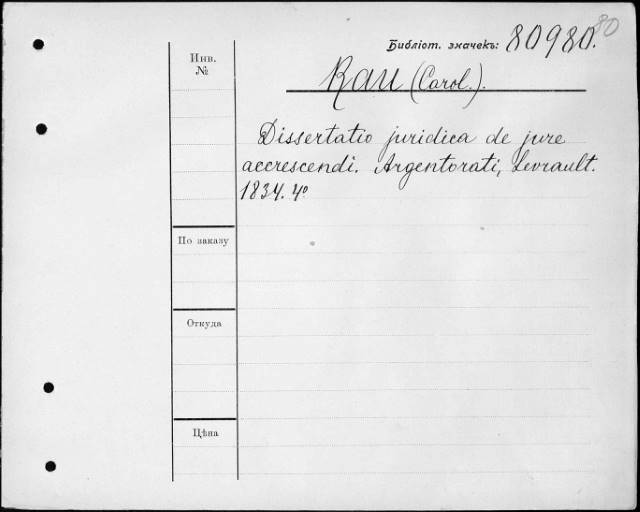 80
Библіот. значекъ: 80980.
Инв.
№
Rau (Carol.).
Dissertatio juridica de jure
accrescendi. Argentorati, Levrault.
1834. 4º
По заказу
Откуда
Цѣна